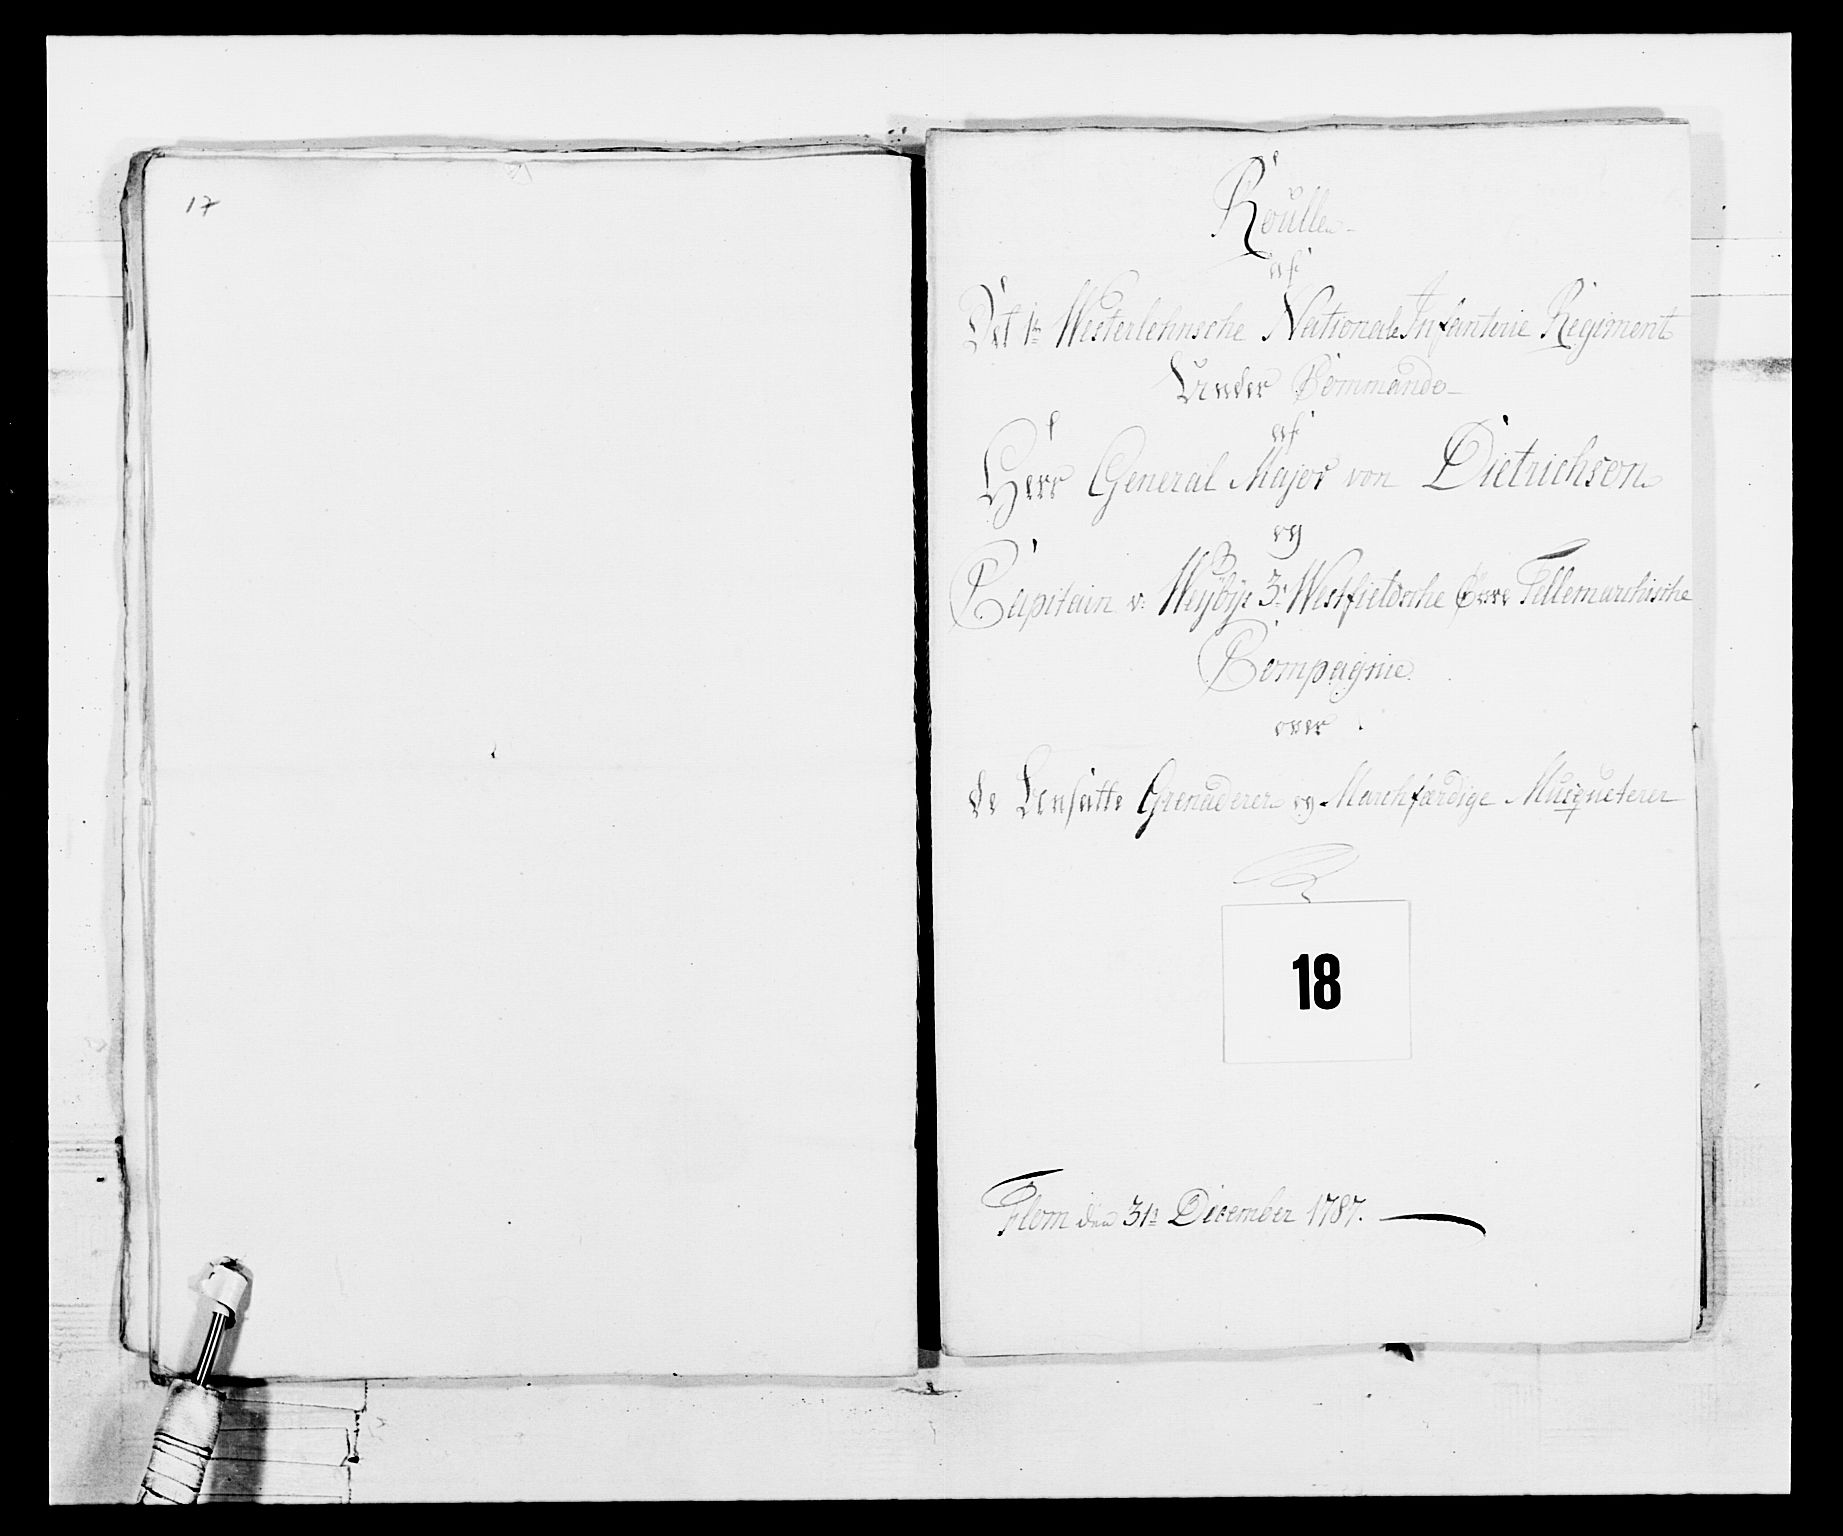 17
Roulle
af
Det 1te Westerlehnsche Nationale Infanterie Regiment
Under Commando
af
Herr General Major von Dietrichson
og
Capitain v: Weybye 3de Westfieldsche Øvre Tellemarchische
Compagnie
over
de Ansatte Grenaderer og Marchfærdige Musqueterer
18
Flom den 31te December 1787.